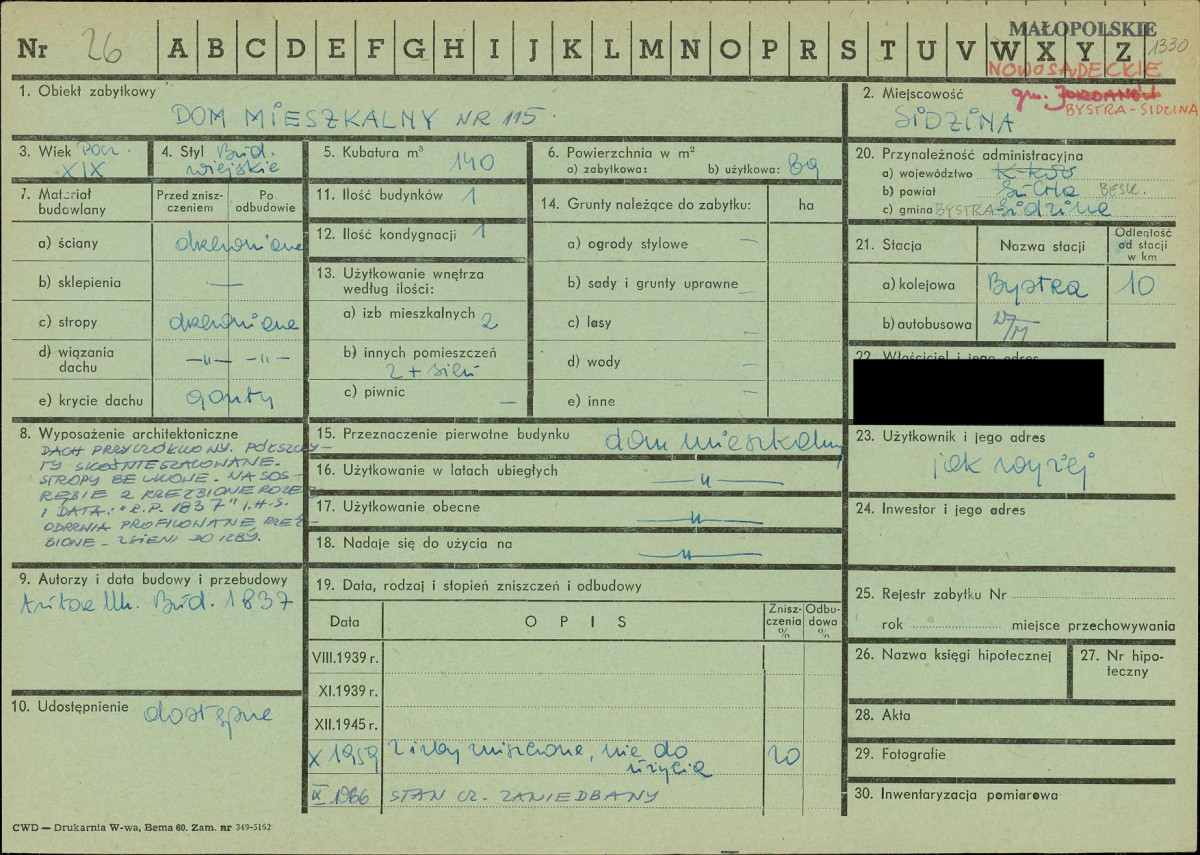 MAŁOPOLSKIE
Nr 26 A B C D E F G H I J K L M N O P R S T U V W X Y Z 1330
NOWOSĄDECKIE
gm. JORDANÓW
BYSTRA-SIDZINA
1. Obiekt zabytkowy
DOM MIESZKALNY NR 115.
2. Miejscowość
SIDZINA
3. Wiek Pocz.
XIX
4. Styl Bud.
wiejskie
5. Kubatura m³ 140
6. Powierzchnia w m²
a) zabytkowa: b) użytkowa: 89
7. Materiał budowlany
Przed zniszczeniem
Po odbudowie
a) ściany drewniane
b) sklepienia —
c) stropy drewniane
d) wiązania dachu —„— —„—
e) krycie dachu gonty
8. Wyposażenie architektoniczne
DACH PRZYCZÓŁKOWY. PÓŁSZCZY-
TY SKOŚNIE SZALOWANE.
STROPY BELKOWE. NA SOS-
RĘBIE 2 RZEŹBIONE ROZE
I DATA: "R.P. 1837" I.H.S.
ODRZWIA PROFILOWANE RZEŹ-
BIONE - Z SIENI DO IZBY.
9. Autorzy i data budowy i przebudowy
Autor Bud. 1837
10. Udostępnienie dostępne
11. Ilość budynków 1
12. Ilość kondygnacji 1
13. Użytkowanie wnętrza
według ilości:
a) izb mieszkalnych 2
b) innych pomieszczeń
2 + sień
c) piwnic —
14. Grunty należące do zabytku: ha
a) ogrody stylowe —
b) sady i grunty uprawne —
c) lasy —
d) wody —
e) inne —
15. Przeznaczenie pierwotne budynku dom mieszkalny
16. Użytkowanie w latach ubiegłych —„—
17. Użytkowanie obecne —„—
18. Nadaje się do użycia na —„—
19. Data, rodzaj i stopień zniszczeń i odbudowy
Data O P I S Zniszczenia % Odbudowa %
VIII.1939 r.
XI.1939 r.
XII.1945 r.
X 1959 2 izby zniszczone, nie do
użycia 20
IX 1966 STAN CZ. ZANIEDBANY
20. Przynależność administracyjna
a) województwo K-ków
b) powiat Sucha BESK.
c) gmina BYSTRA-Sidzina
21. Stacja Nazwa stacji Odległość od stacji w km
a) kolejowa Bystra 10
b) autobusowa
22. Właściciel i jego adres
23. Użytkownik i jego adres
jak wyżej
24. Inwestor i jego adres
25. Rejestr zabytku Nr
rok miejsce przechowywania
26. Nazwa księgi hipotecznej
27. Nr hipoteczny
28. Akta
29. Fotografie
30. Inwentaryzacja pomiarowa
CWD — Drukarnia W-wa, Bema 60. Zam. nr 349-5162